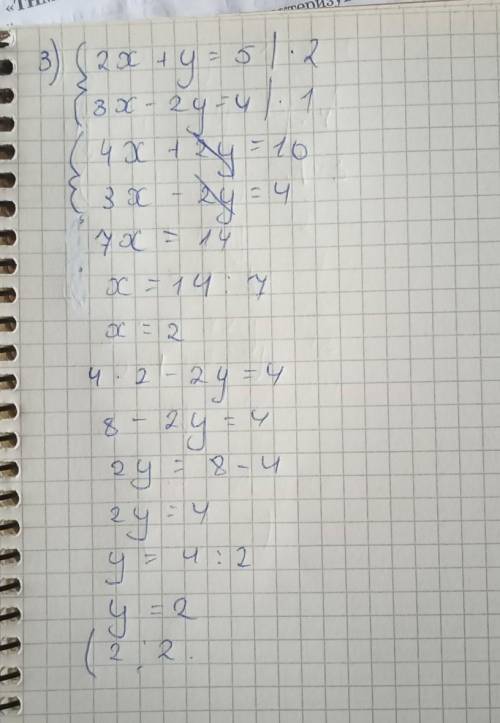 3) { 2x + y = 5 | · 2
{ 3x - 2y = 4 | · 1
{ 4x + 2y = 10
{ 3x - 2y = 4
7x = 14
x = 14 : 7
x = 2
4 · 2 - 2y = 4
8 - 2y = 4
2y = 8 - 4
2y = 4
y = 4 : 2
y = 2
( 2 ; 2 .